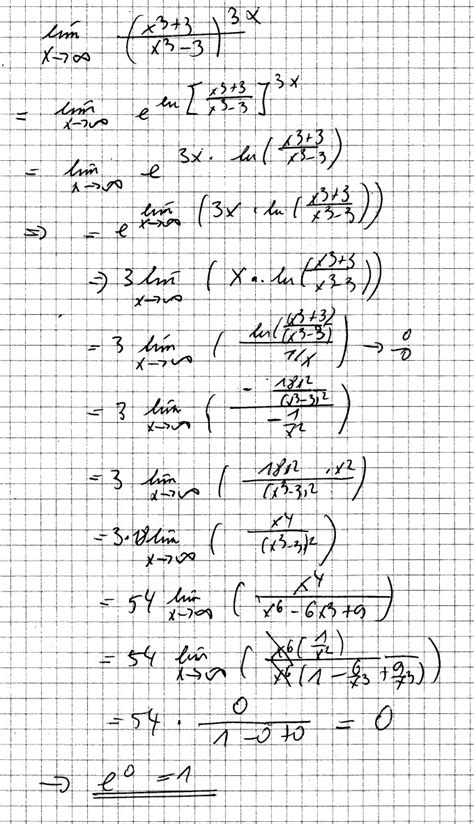 lim x→∞ ((x³+3)/(x³-3))^3x
= lim x→∞ e^ln[(x³+3)/(x³-3)]^3x
= lim x→∞ e^3x · ln((x³+3)/(x³-3))
⇒ = e^lim x→∞ (3x · ln((x³+3)/(x³-3)))
⇒ 3 lim x→∞ (x · ln((x³+3)/(x³-3)))
= 3 lim x→∞ (ln((x³+3)/(x³-3))/(1/x)) → 0/0
= 3 lim x→∞ (-(18x²/(x³-3)²)/(-1/x²))
= 3 lim x→∞ (18x² · x²/(x³-3)²)
= 3·18 lim x→∞ (x⁴/(x³-3)²)
= 54 lim x→∞ (x⁴/(x⁶-6x³+9))
= 54 lim x→∞ (x⁶(1/x²)/(x⁶(1-6/x³+9/x³)))
= 54 · 0/(1-0+0) = 0
→ e⁰ = 1